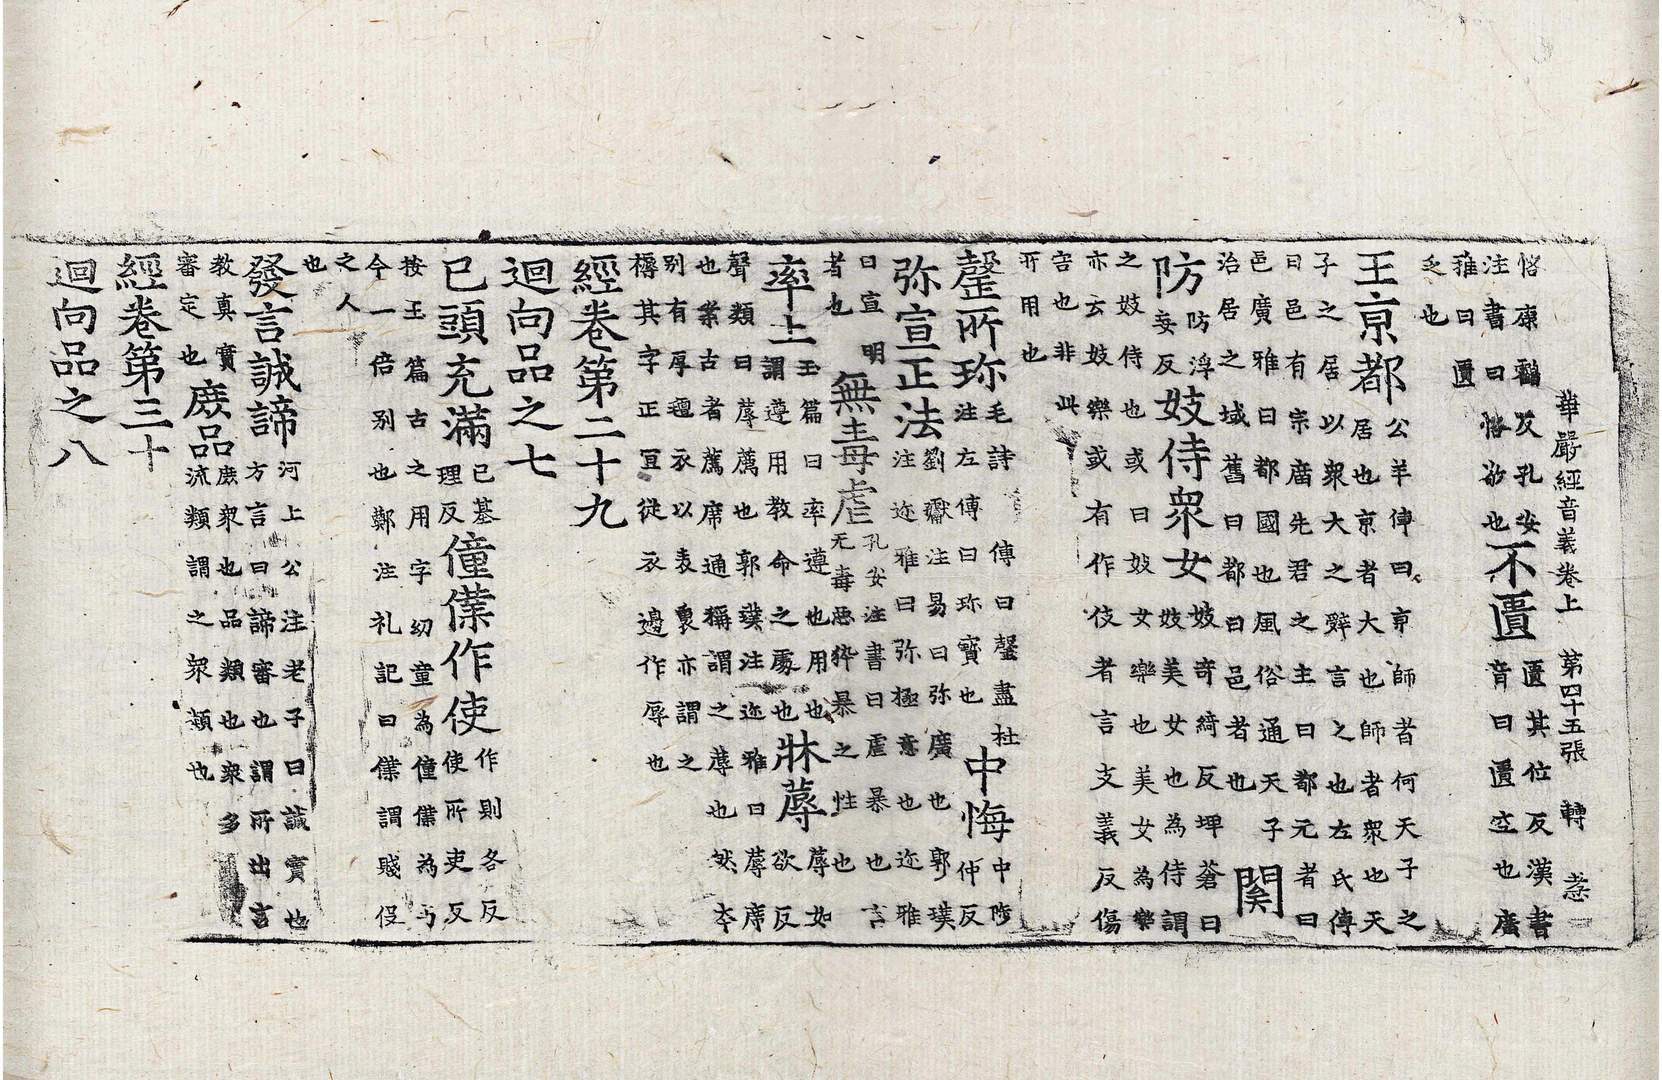 華嚴經音義卷上 第四十五張 轉
反孔安
注書曰悋欲也
不匱
匱其位反漢書
音曰匱空也廣
雅曰匱
乏也
王京都
公羊傳曰京師者何天子之
居也京者大也師者衆也天
子之居以衆大之辭言之也左氏傳
曰邑有宗庿先君之主曰都元者曰
邑廣雅曰都國也風俗通天子
治居之域舊曰都曰邑者也
防
防浮
妄反
妓侍衆女
妓奇綺反埤蒼曰
妓美女也為侍謂
之妓侍也或曰妓女樂也美女為樂
亦云妓樂或有作伎者言支義反傷
害也非此
所用也
罄所珎
毛詩傳曰罄盡杜
注左傳曰珎寳也
中悔
中陟
仲反
弥宣正法
劉瓛注易曰弥廣也郭璞
注迩雅曰弥極意也迩雅
曰宣明
者也
無毒虐
孔安注書曰虐暴也言
无毒惡猝暴之性也
率土
玉篇曰率遵也用也
謂遵用教命之處也
牀蓐
蓐如
欲反
聲類曰蓐薦也郭璞注迩雅曰蓐席
也案古者薦席通稱謂之蓐也然夲
别有厚氊衣以表裏亦謂之
褥其字正冝從衣邊作辱也
經卷第二十九
迴向品之七
已頭充滿
已基
理反
僮僕作使
作則各反
使所吏反
按玉篇古之用字幼童為僮僕為亏
今一倍别也鄭注礼記曰僕謂賤伇
之人
也
發言誠諦
河上公注老子曰誠實也
方言曰諦審也謂所出言
教真實
審定也
庻品
庻衆也品類也衆多
流類謂之衆類也
經卷第三十
迴向品之八